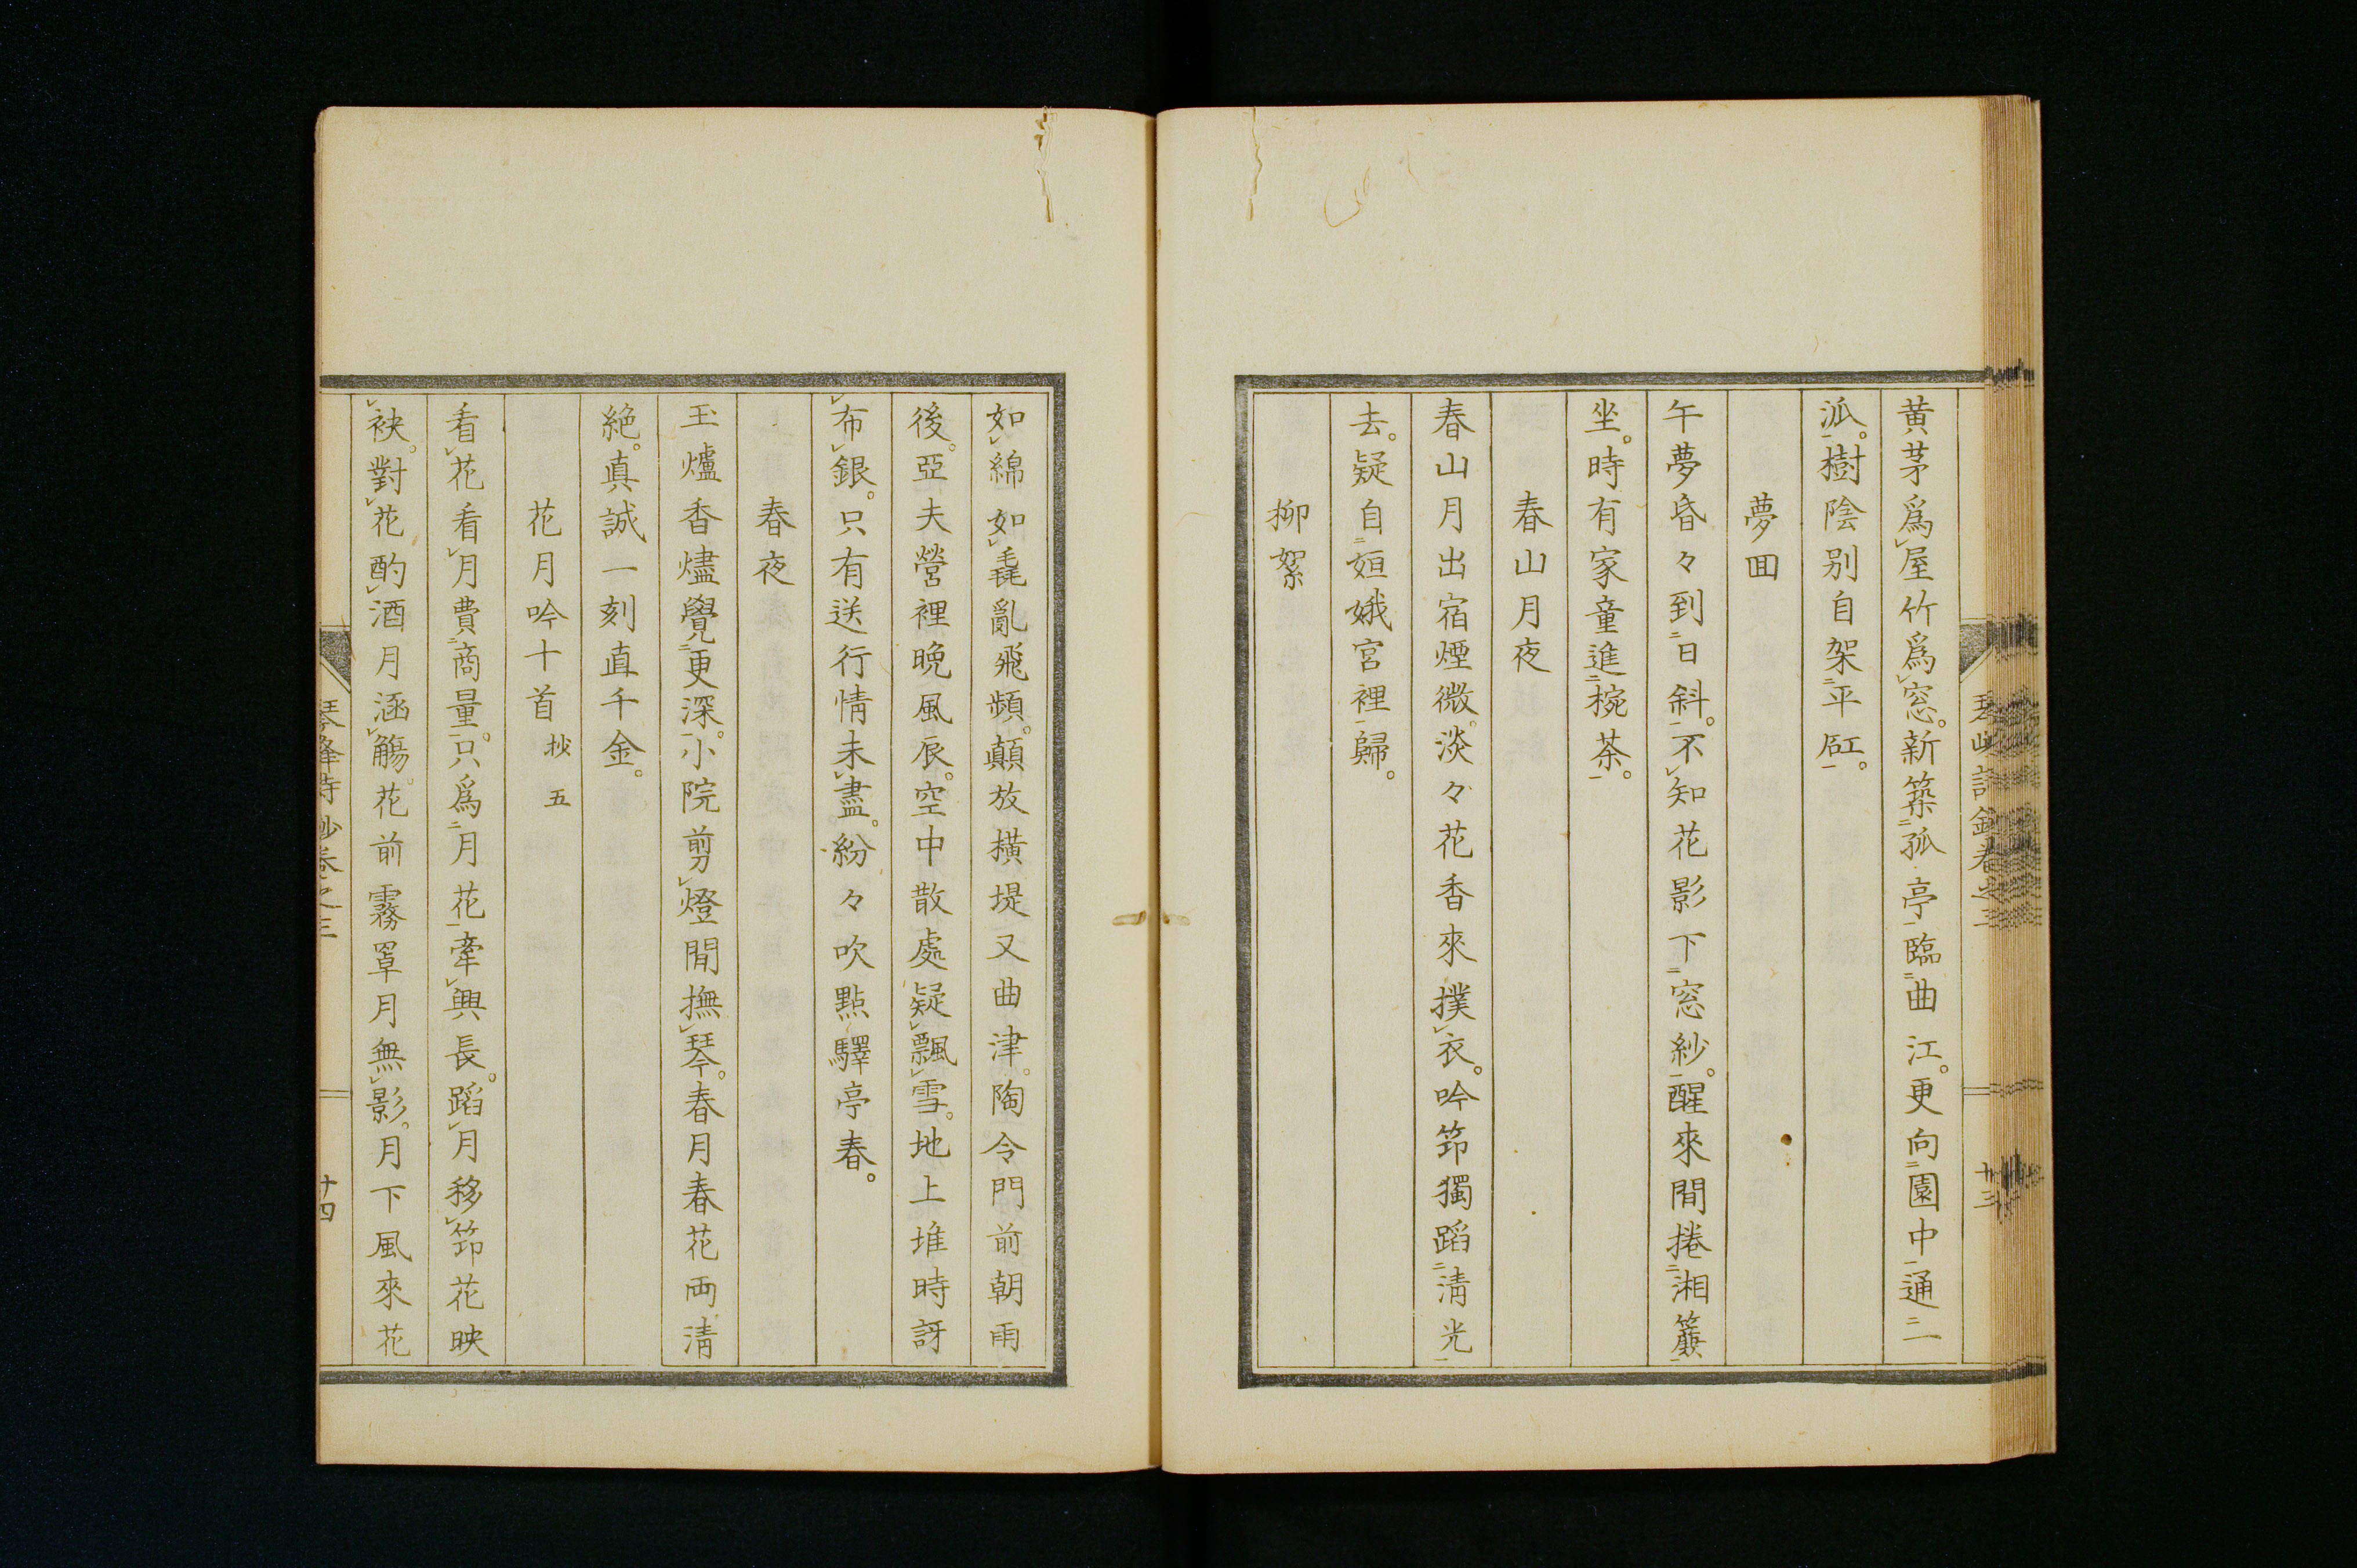 黄茅爲屋竹爲窓。新築孤亭臨曲江。更向園中通一
派。樹陰別自架平矼。
夢囬
午夢昏々到日斜。不知花影下窓紗。醒來間捲湘簾
坐。時有家童進椀茶。
春山月夜
春山月出宿煙微。淡々花香來撲衣。吟筇獨蹈清光
去。疑自姮娥宮裡歸。
柳絮
如綿如毳亂飛頻。顛放橫堤又曲津。陶令門前朝雨
後。亞夫營裡晚風辰。空中散處疑飄雪。地上堆時訝
布銀。只有送行情未盡。紛々吹點驛亭春。
春夜
玉爐香燼覺更深。小院剪燈閒撫琴。春月春花両清
絶。真誠一刻直千金。
花月吟十首 抄五
看花看月費商量。只爲月花牽興長。蹈月移筇花映
袂。對花酌酒月涵觴。花前霧罩月無影。月下風來花
琴峰詩鈔卷之三
十四